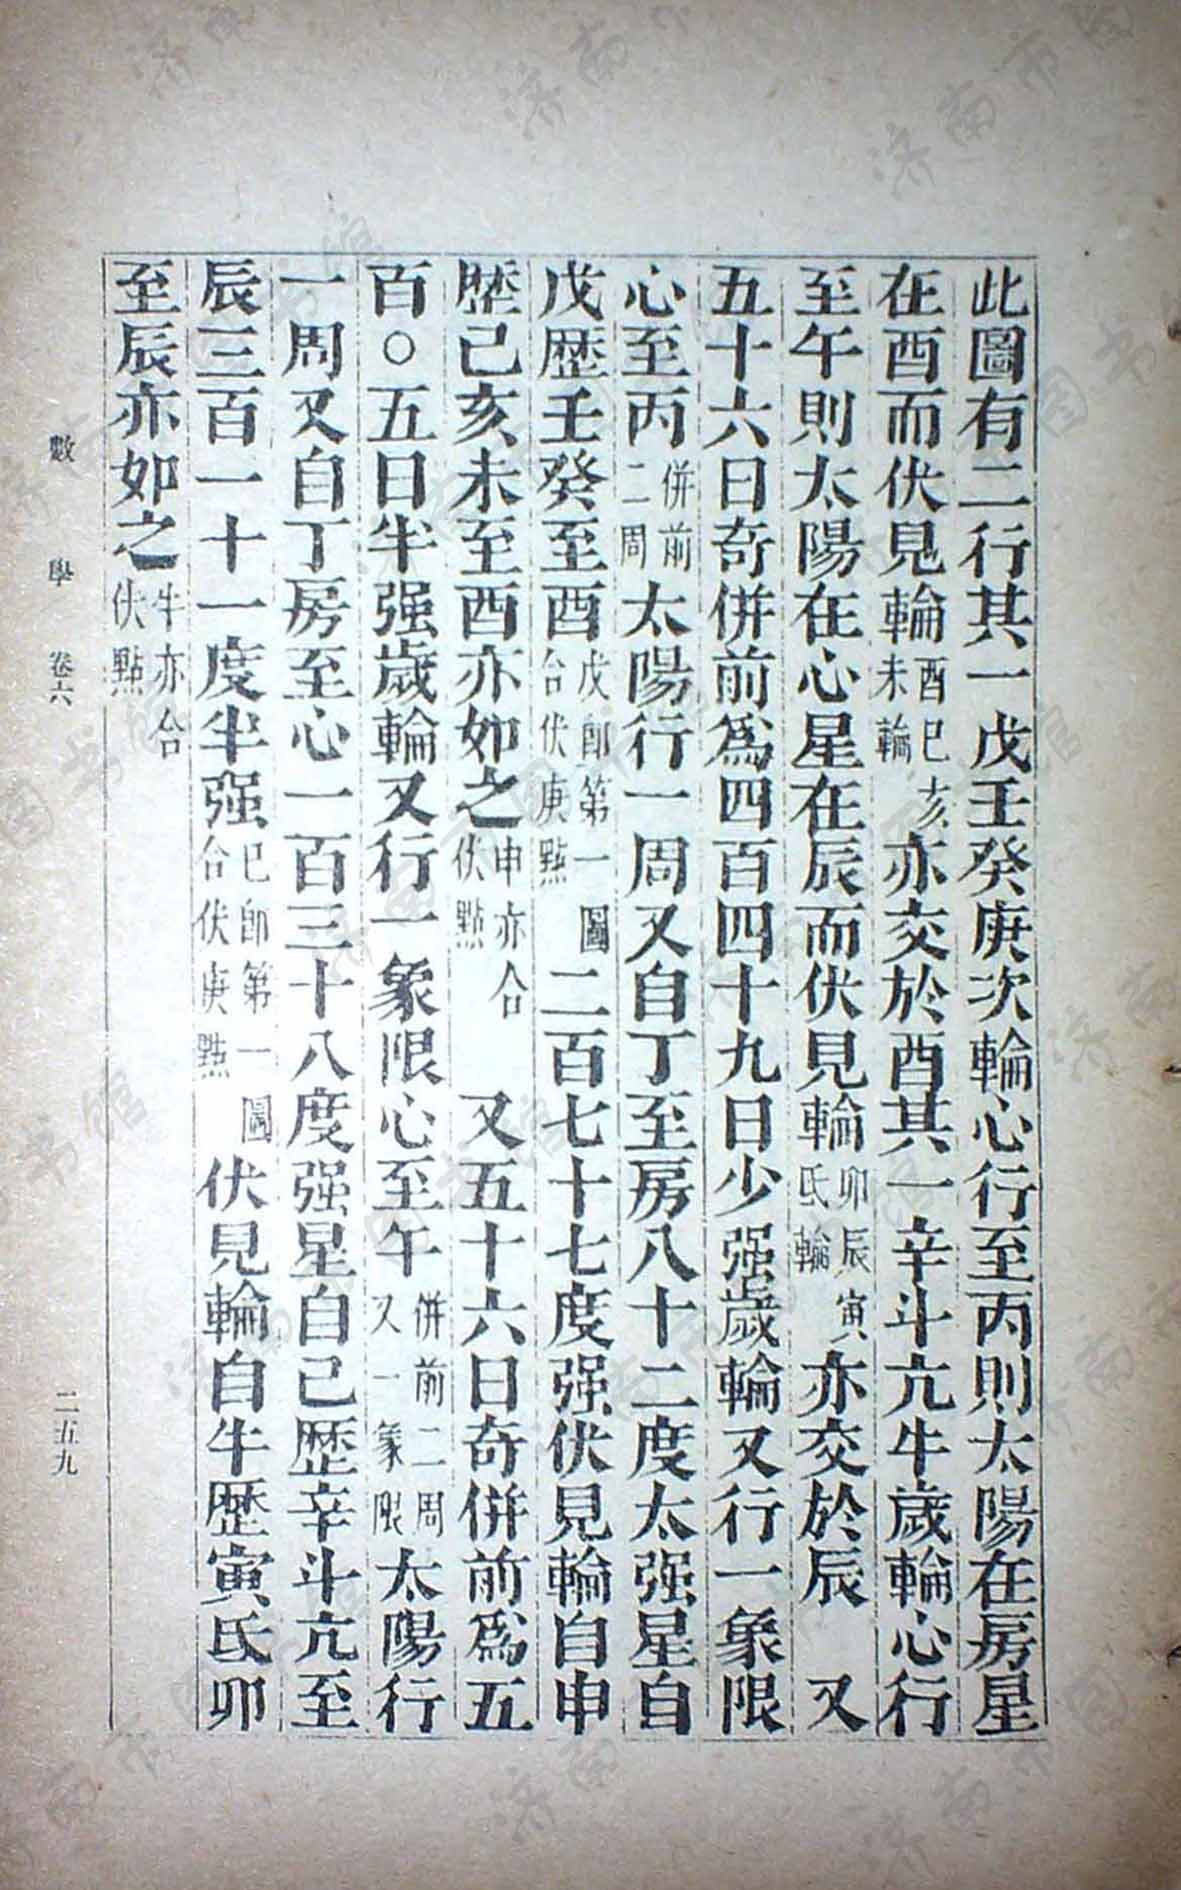 此圖有二行其一戊壬癸庚次輪心行至丙則太陽在房星
在酉而伏見輪酉巳亥未輪亦交於酉其一辛斗亢牛歲輪心行
至午則太陽在心星在辰而伏見輪卯辰寅氐輪亦交於辰　又
五十六日奇併前爲四百四十九日少强歲輪又行一象限
心至丙併前二周太陽行一周又自丁至房八十二度太强星自
戊歷壬癸至酉戊卽第一圖合伏庚點二百七十七度强伏見輪自申
歷己亥未至酉亦如之申亦合伏點　又五十六日奇併前爲五
百○五日半强歲輪又行一象限心至午併前二周又一象限太陽行
一周又自丁房至心一百三十八度强星自己歷辛斗亢至
辰三百一十一度半强巳卽第一圖合伏庚點伏見輪自牛歷寅氐卯
至辰亦如之牛亦合伏點
數學　卷六　二五九